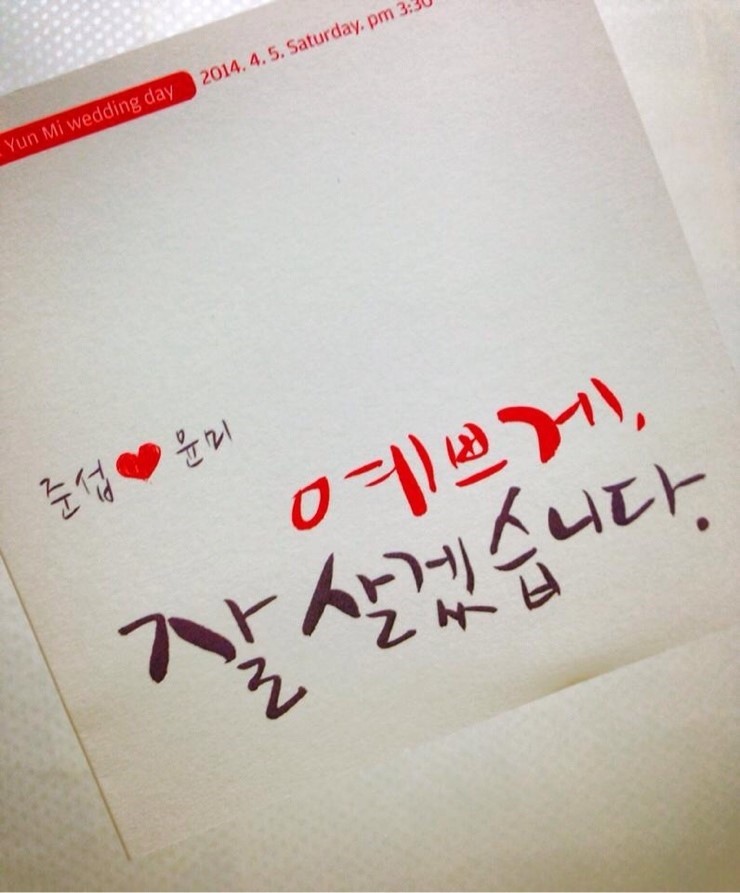 Yun Mi wedding day 2014. 4. 5. Saturday. pm 3:30
준섭 ♥ 윤미
예쁘게,
잘 살겠습니다.